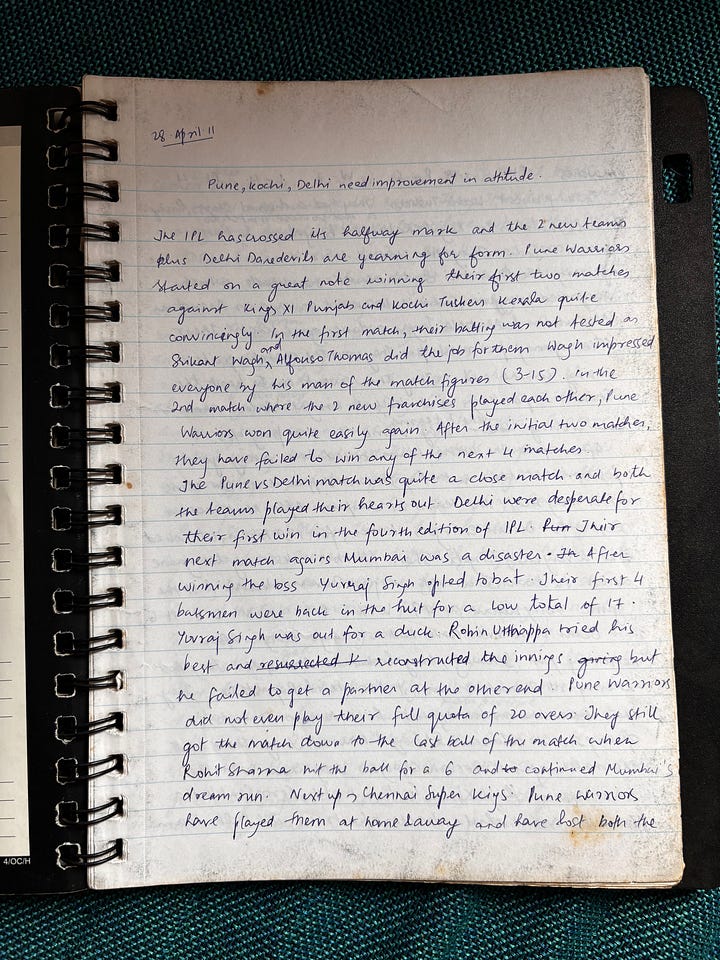 28 April 11
Pune, Kochi, Delhi need improvement in attitude.
The IPL has crossed its halfway mark and the 2 new teams
plus Delhi Daredevils are yearning for form. Pune Warriors
started on a great note winning their first two matches
against Kings XI Punjab and Kochi Tuskers Kerala quite
convincingly. In the first match, their batting was not tested as
Srikant Wagh and Alfonso Thomas did the job for them Wagh impressed
everyone by his man of the match figures (3-15). In the
2nd match where the 2 new franchises played each other, Pune
Warriors won quite easily again. After the initial two matches,
they have failed to win any of the next 4 matches.
The Pune vs Delhi match was quite a close match and both
the teams played their hearts out. Delhi were desperate for
their first win in the fourth edition of IPL. Pun Their
next match agains Mumbai was a disaster. In After
winning the toss Yuvraj Singh opted to bat. Their first 4
batsmen were back in the hut for a low total of 17.
Yuvraj Singh was out for a duck. Robin Uthappa tried his
best and resurrected reconstructed the innings giving but
he failed to get a partner at the other end. Pune Warriors
did not even play their full quota of 20 overs. They still
got the match down to the last ball of the match when
Rohit Sharma hit the ball for a 6 and to continued Mumbai's
dream run. Next up, Chennai Super Kings. Pune Warriors
have played them at home & away and have lost both the
4/OC/H